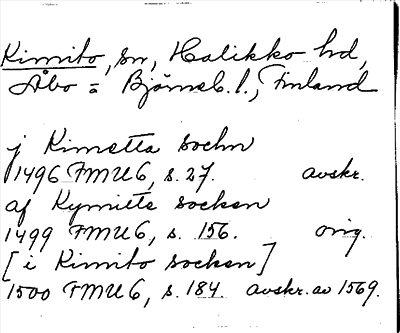 Kimito, sn, Halikko hd,
Åbo = Björneb. l., Finland
j Kimetta sochn
1496 FMU 6, s. 27. avskr.
af Kymitte socken
1499 FMU 6, s. 156. orig.
[i Kimito socken]
1500 FMU 6, s. 184. avskr. av 1569.